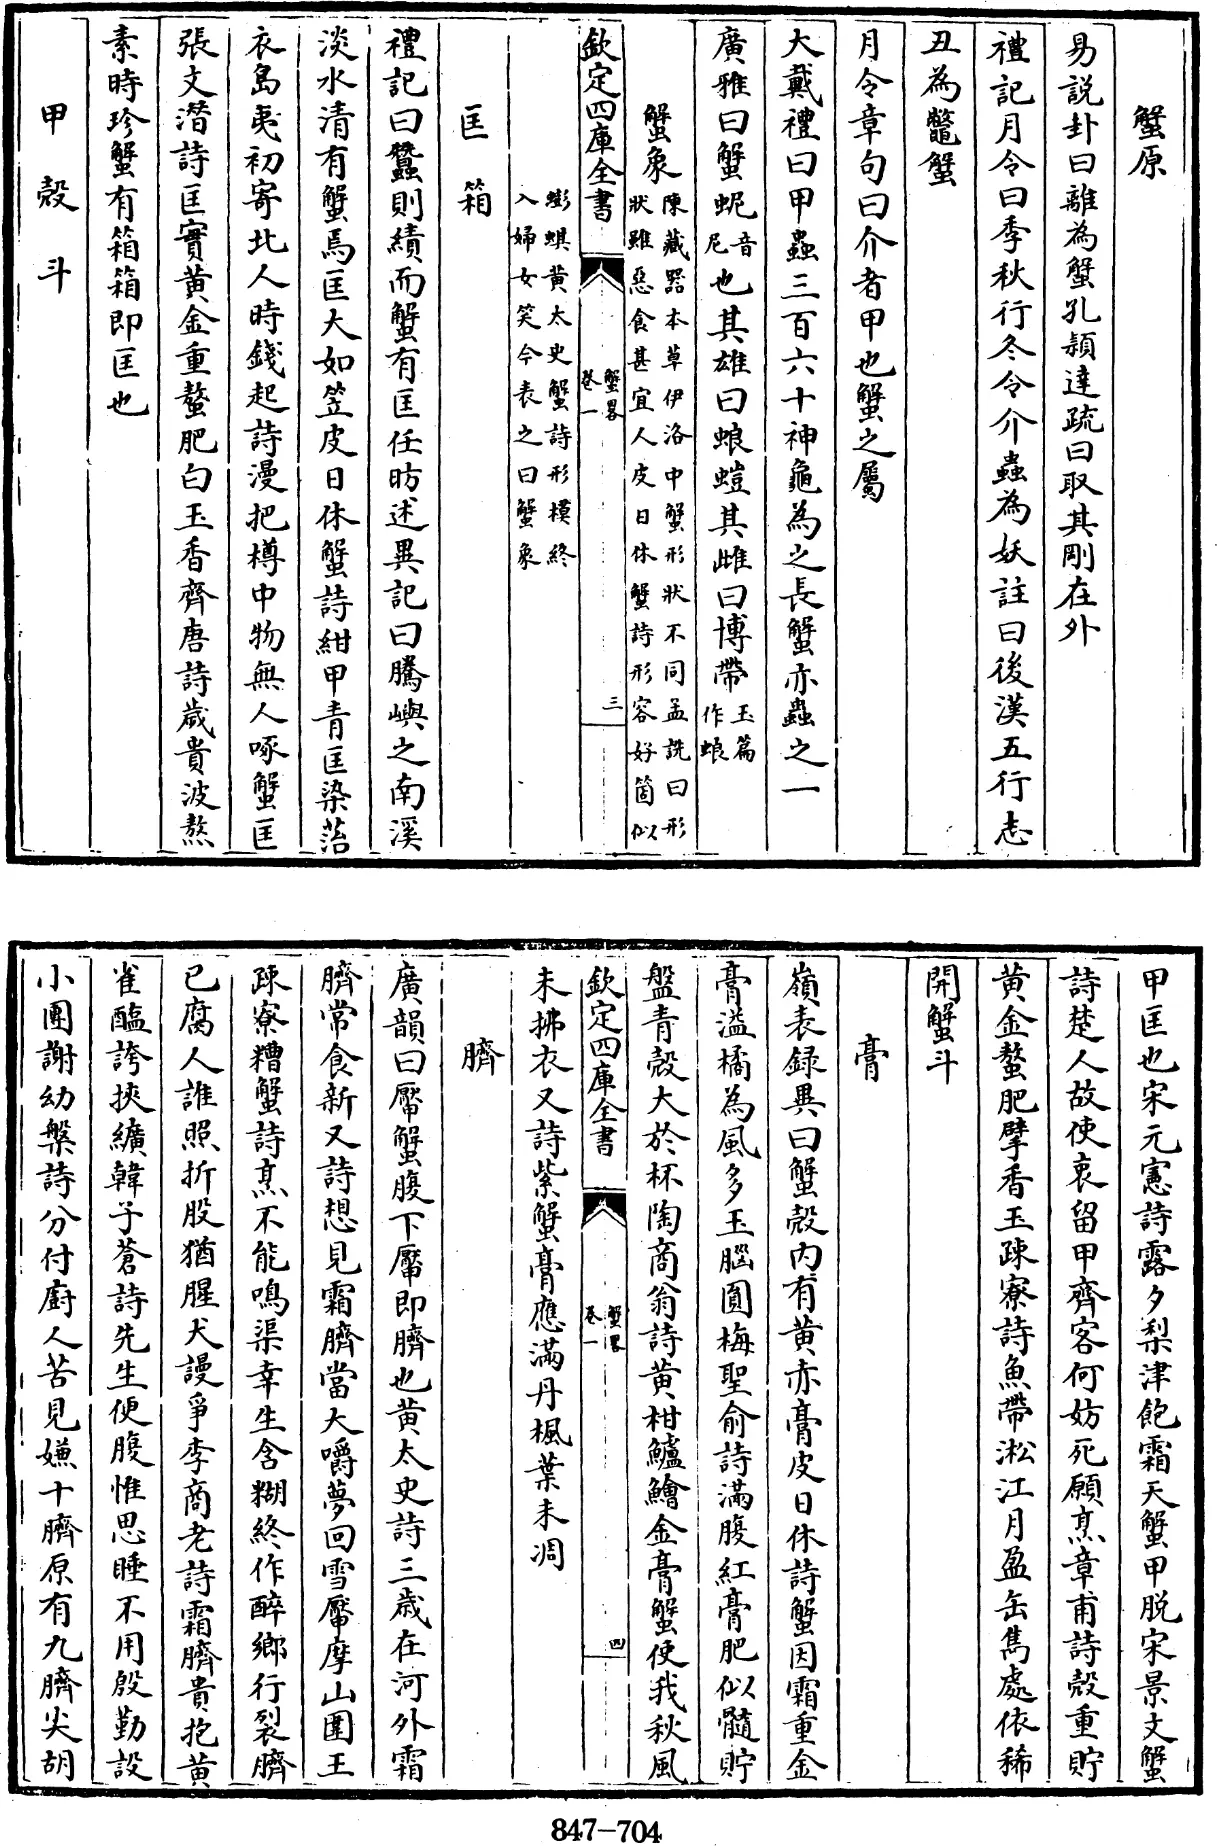 蟹原
易説卦曰離為蟹孔頴達疏曰取其剛在外
禮記月令曰季秋行冬令介蟲為妖註曰後漢五行志
丑為鼈蟹
月令章句曰介者甲也蟹之屬
大戴禮曰甲蟲三百六十神龜為之長蟹亦蟲之一
廣雅曰蟹蚭音尼也其雄曰蜋螘其雌曰博帶玉篇作蜋
蟹象陳藏器本草伊洛中蟹形狀不同孟詵曰形
狀雖惡食甚宜人皮日休蟹詩形容好箇似
欽定四庫全書
蟹畧
卷一
三
蟛蜞黄太史蟹詩形模終
入婦女笑今表之曰蟹象
匡箱
禮記曰蠶則績而蟹有匡任昉述異記曰騰嶼之南溪
淡水清有蟹焉匡大如笠皮日休蟹詩紺甲青匡染菭
衣島夷初寄北人時錢起詩漫把樽中物無人啄蟹匡
張文潛詩匡實黄金重螯肥白玉香齊唐詩歲貴波熬
素時珍蟹有箱箱即匡也
甲殻斗
甲匡也宋元憲詩露夕梨津飽霜天蟹甲脱宋景文蟹
詩楚人故使衷留甲齊客何妨死願烹章甫詩殻重貯
黄金螯肥擘香玉疎寮詩魚帶淞江月盈缶雋處依稀
開蟹斗
膏
嶺表録異曰蟹殻内有黄赤膏皮日休詩蟹因霜重金
膏溢橘為風多玉腦圓梅聖俞詩滿腹紅膏肥似髓貯
盤青殻大於杯陶商翁詩黄柑鱸鱠金膏蟹使我秋風
欽定四庫全書
蟹畧
卷一
四
未拂衣又詩紫蟹膏應滿丹楓葉未凋
臍
廣韻曰厴蟹腹下厴即臍也黄太史詩三歳在河外霜
臍常食新又詩想見霜臍當大嚼夢回雪厴摩山圍王
疎寮糟蟹詩烹不能鳴渠幸生含糊終作醉鄉行裂臍
已腐人誰照折股猶腥犬謾爭李商老詩霜臍貴抱黄
雀醖誇挾纊韓子蒼詩先生便腹惟思睡不用殷勤設
小團謝幼槃詩分付廚人苦見嫌十臍原有九臍尖胡
847-704